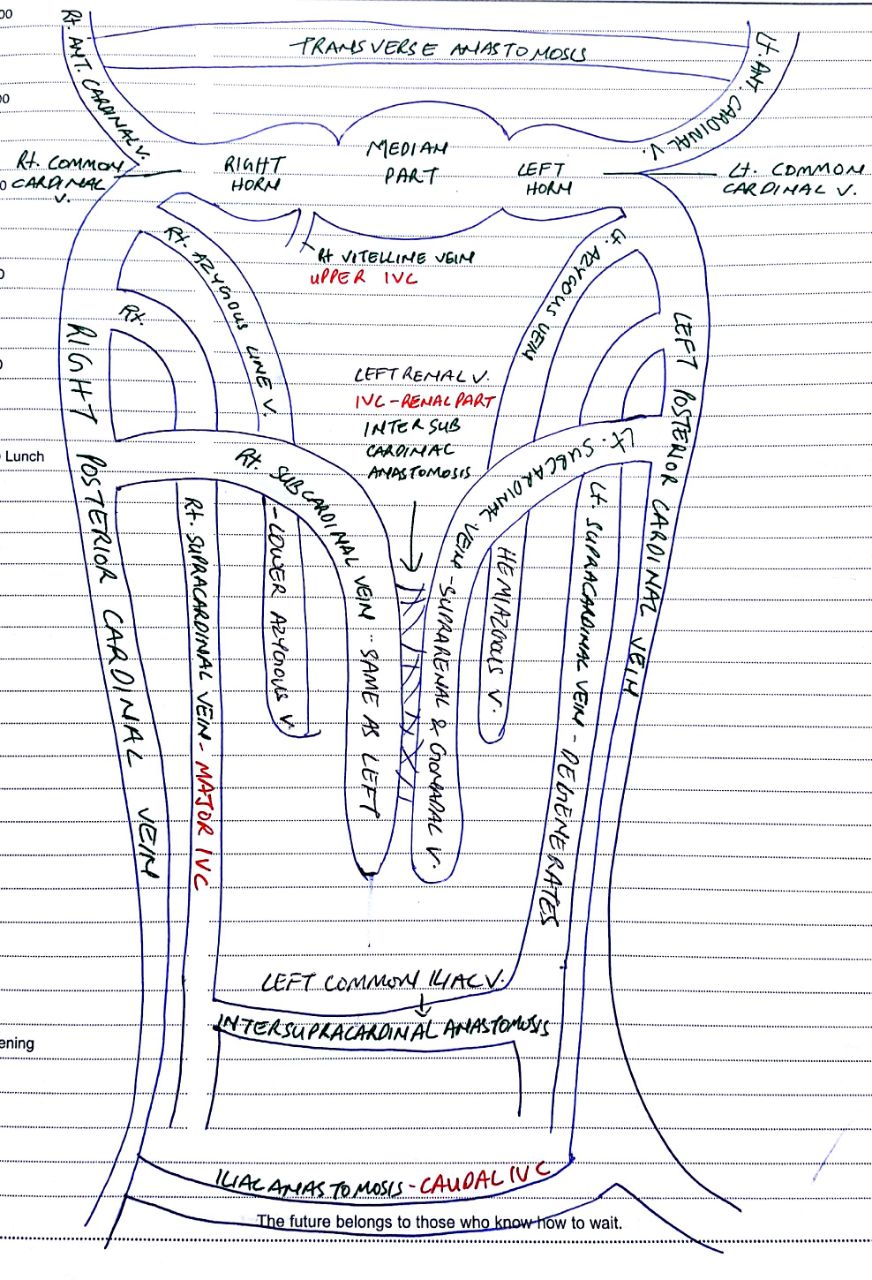 00
TRANSVERSE ANASTOMOSIS
Rt. ANT. CARDINAL V.
Lt. ANT. CARDINAL V.
00
MEDIAN
PART
RIGHT
HORN
LEFT
HORN
Rt. COMMON
CARDINAL
V.
Lt. COMMON
CARDINAL V.
0
Rt VITELLINE VEIN
UPPER IVC
Rt. AZYGOUS LINE V.
Lt. AZYGOUS VEIN
0
Rt.
RIGHT POSTERIOR CARDINAL VEIN
LEFT POSTERIOR CARDINAL VEIN
0
LEFT RENAL V.
IVC-RENAL PART
INTER SUB
CARDINAL
ANASTOMOSIS
Lunch
Rt. SUBCARDINAL VEIN - SAME AS LEFT
Lt. SUBCARDINAL VEIN - SUPRARENAL & GONADAL V.
Rt. SUPRACARDINAL VEIN - MAJOR IVC
- LOWER AZYGOUS V.
HEMIAZGOUS V.
Lt. SUPRACARDINAL VEIN - DEGENERATES
LEFT COMMON ILIAC V.
INTERSUPRACARDINAL ANASTOMOSIS
ening
ILIAC ANASTOMOSIS - CAUDAL IVC
The future belongs to those who know how to wait.